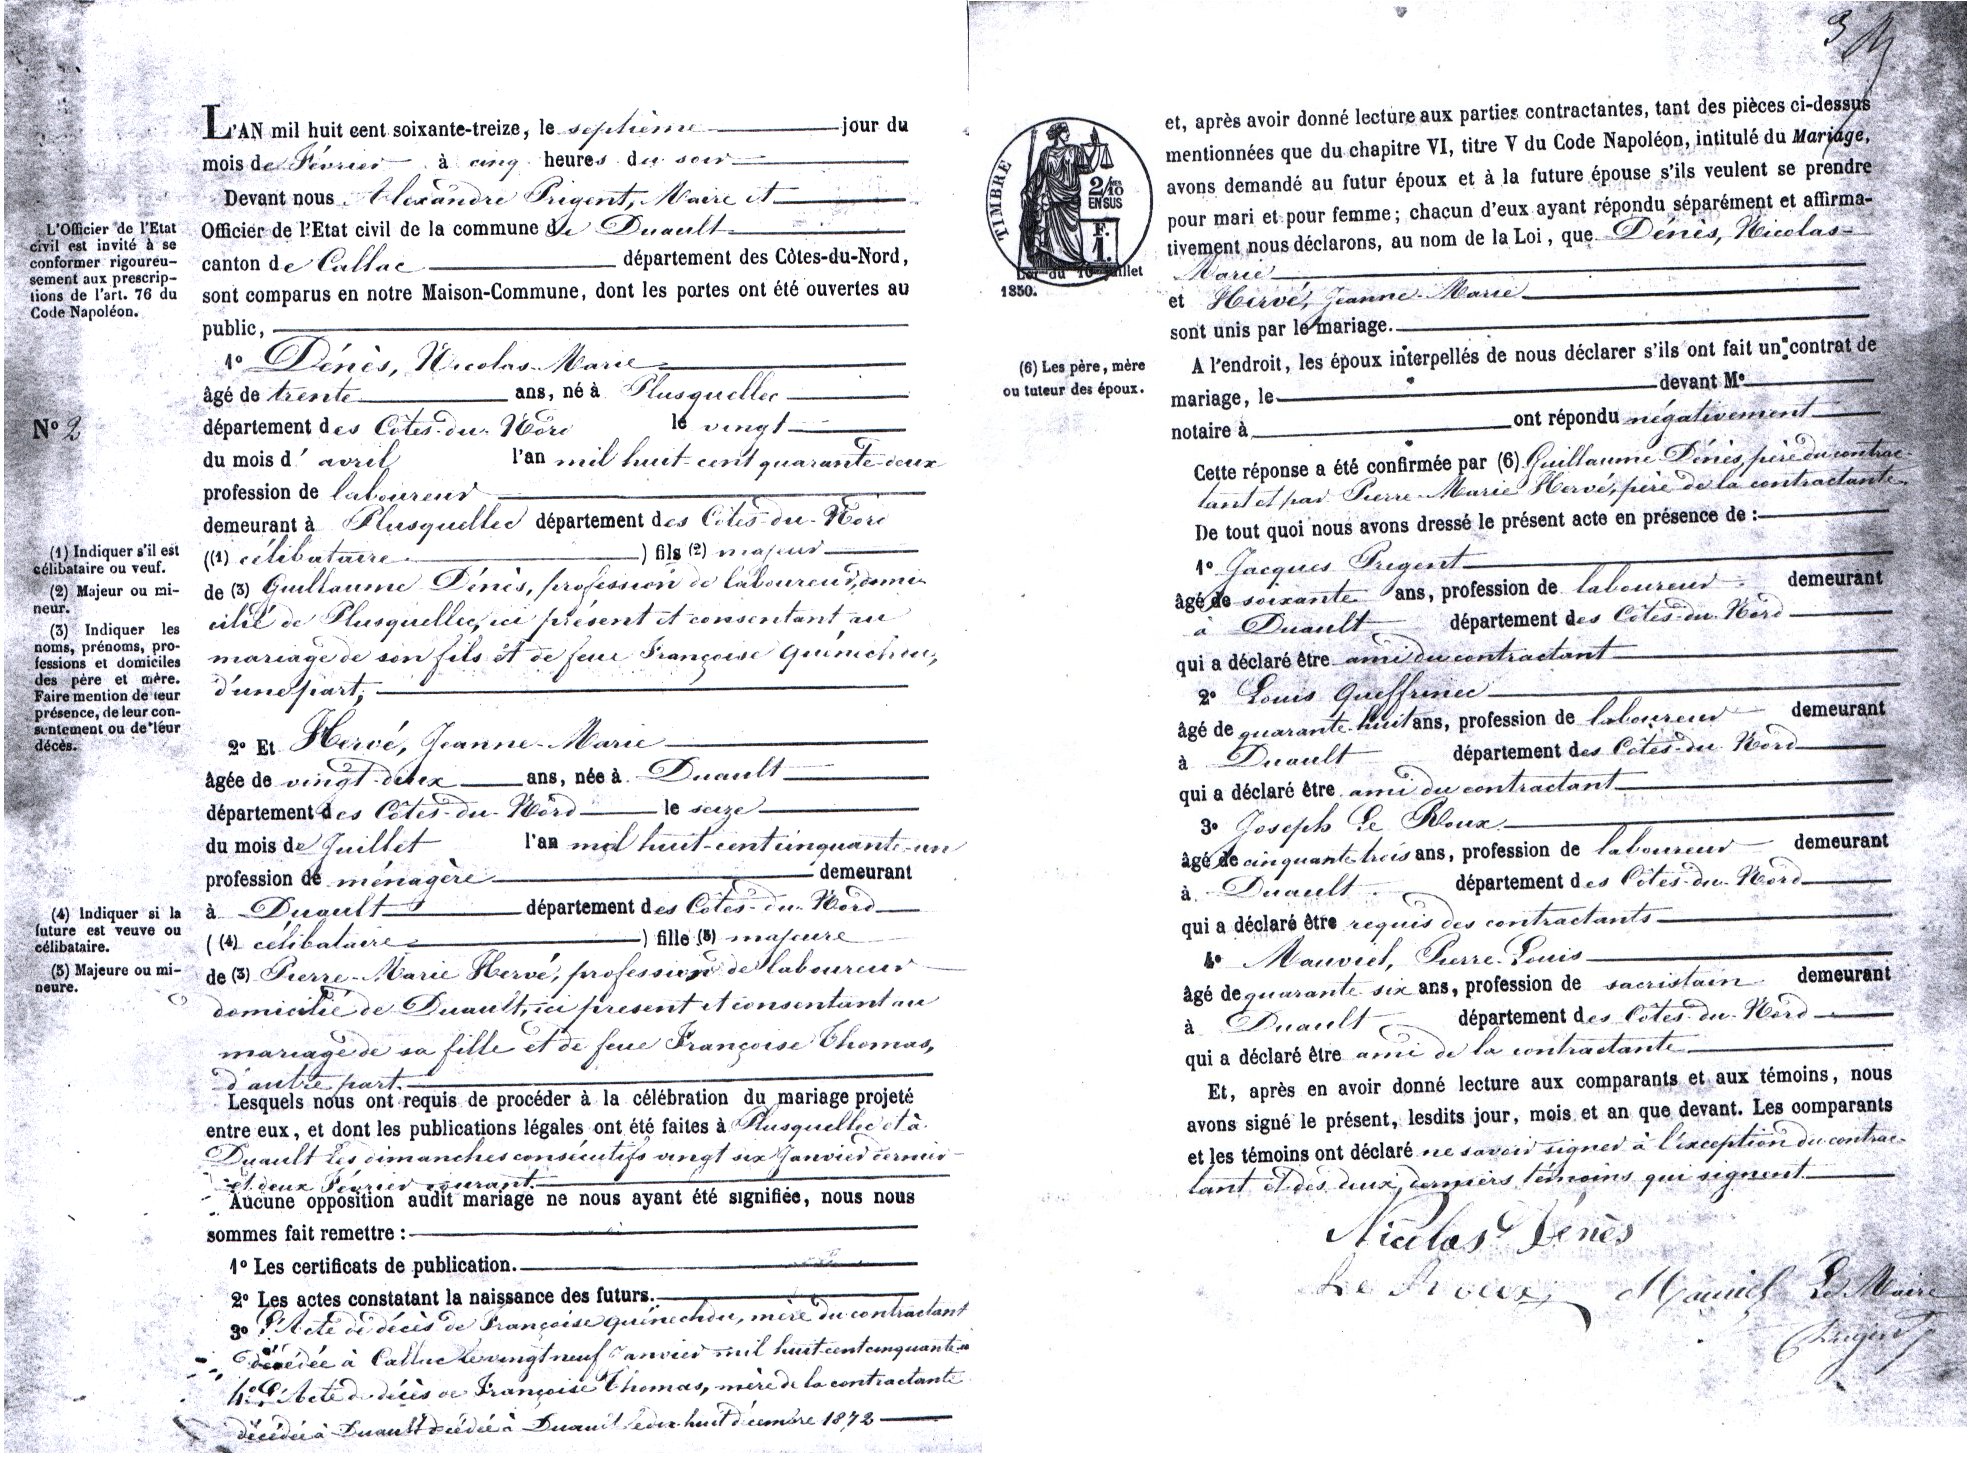 L'AN mil huit cent soixante-treize, le septième jour du
mois de Février à cinq heures du soir
Devant nous Alexandre Prigent, Maire et
Officier de l'Etat civil de la commune de Duault
canton de Callac département des Côtes-du-Nord,
sont comparus en notre Maison-Commune, dont les portes ont été ouvertes au
public,
L'Officier de l'Etat
civil est invité à se
conformer rigoureu-
sement aux prescrip-
tions de l'art. 76 du
Code Napoléon.
1° Dénès, Nicolas-Marie
âgé de trente ans, né à Plusquellec
N° 2
département des Côtes-du-Nord le vingt
du mois d'avril l'an mil huit-cent quarante-deux
profession de laboureur
demeurant à Plusquellec département des Côtes-du-Nord
((1) célibataire ) fils (2) majeur
(1) Indiquer s'il est
célibataire ou veuf.
(2) Majeur ou mi-
neur.
(3) Indiquer les
noms, prénoms, pro-
fessions et domiciles
des père et mère.
Faire mention de leur
présence, de leur con-
sentement ou de leur
décès.
de (3) Guillaume Dénès, profession de laboureur, domi-
cilié de Plusquellec, ici présent et consentant au
mariage de son fils et de feue Françoise Quénechdu,
d'une part,
2° Et Hervé, Jeanne-Marie
âgée de vingt-deux ans, née à Duault
département des Côtes-du-Nord le seize
du mois de Juillet l'an mil huit-cent cinquante-un
profession de ménagère demeurant
à Duault département des Côtes-du-Nord
((4) célibataire ) fille (5) majeure
(4) Indiquer si la
future est veuve ou
célibataire.
(5) Majeure ou mi-
neure.
de (3) Pierre-Marie Hervé, profession de laboureur
domicilié de Duault, ici present et consentant au
mariage de sa fille et de feue Françoise Thomas,
d'autre part.
Lesquels nous ont requis de procéder à la célébration du mariage projeté
entre eux, et dont les publications légales ont été faites à Plusquellec et à
Duault les dimanches consécutifs vingt six Janvier dernier
et deux Février courant.
Aucune opposition audit mariage ne nous ayant été signifiée, nous nous
sommes fait remettre :
1° Les certificats de publication.
2° Les actes constatant la naissance des futurs.
3° l'Acte de décès de Françoise Quénechdu, mère du contractant
décédée à Callac le vingt neuf Janvier mil huit cent cinquante-
4° L'Acte de décès de Françoise Thomas, mère de la contractante
décédée à Duault décédée à Duault le dix-huit décembre 1872
3
TIMBRE
2/10 EN SUS
F. 1.
Loi du 10 juillet
1850.
et, après avoir donné lecture aux parties contractantes, tant des pièces ci-dessus
mentionnées que du chapitre VI, titre V du Code Napoléon, intitulé du Mariage,
avons demandé au futur époux et à la future épouse s'ils veulent se prendre
pour mari et pour femme ; chacun d'eux ayant répondu séparément et affirma-
tivement nous déclarons, au nom de la Loi, que Dénès, Nicolas-
Marie
et Hervé, Jeanne-Marie
sont unis par le mariage.
A l'endroit, les époux interpellés de nous déclarer s'ils ont fait un contrat de
mariage, le devant Me
notaire à ont répondu négativement
(6) Les père, mère
ou tuteur des époux.
Cette réponse a été confirmée par (6) Guillaume Dénès, père du contrac-
tant et par Pierre-Marie Hervé, père de la contractante.
De tout quoi nous avons dressé le présent acte en présence de :
1° Jacques Prigent
âgé de soixante ans, profession de laboureur demeurant
à Duault département des Côtes-du-Nord
qui a déclaré être ami du contractant
2° Louis Queffrinec
âgé de quarante-huit ans, profession de laboureur demeurant
à Duault département des Côtes-du-Nord
qui a déclaré être ami du contractant
3° Joseph Le Roux
âgé de cinquante-trois ans, profession de laboureur demeurant
à Duault département des Côtes-du-Nord
qui a déclaré être requis des contractants
4° Mauviel, Pierre-Louis
âgé de quarante six ans, profession de sacristain demeurant
à Duault département des Côtes-du-Nord
qui a déclaré être ami de la contractante
Et, après en avoir donné lecture aux comparants et aux témoins, nous
avons signé le présent, lesdits jour, mois et an que devant. Les comparants
et les témoins ont déclaré ne savoir signer à l'exception du contrac-
tant et des deux derniers témoins qui signent
Nicolas Dénès
Le Roux Mauviel Le Maire
Prigent